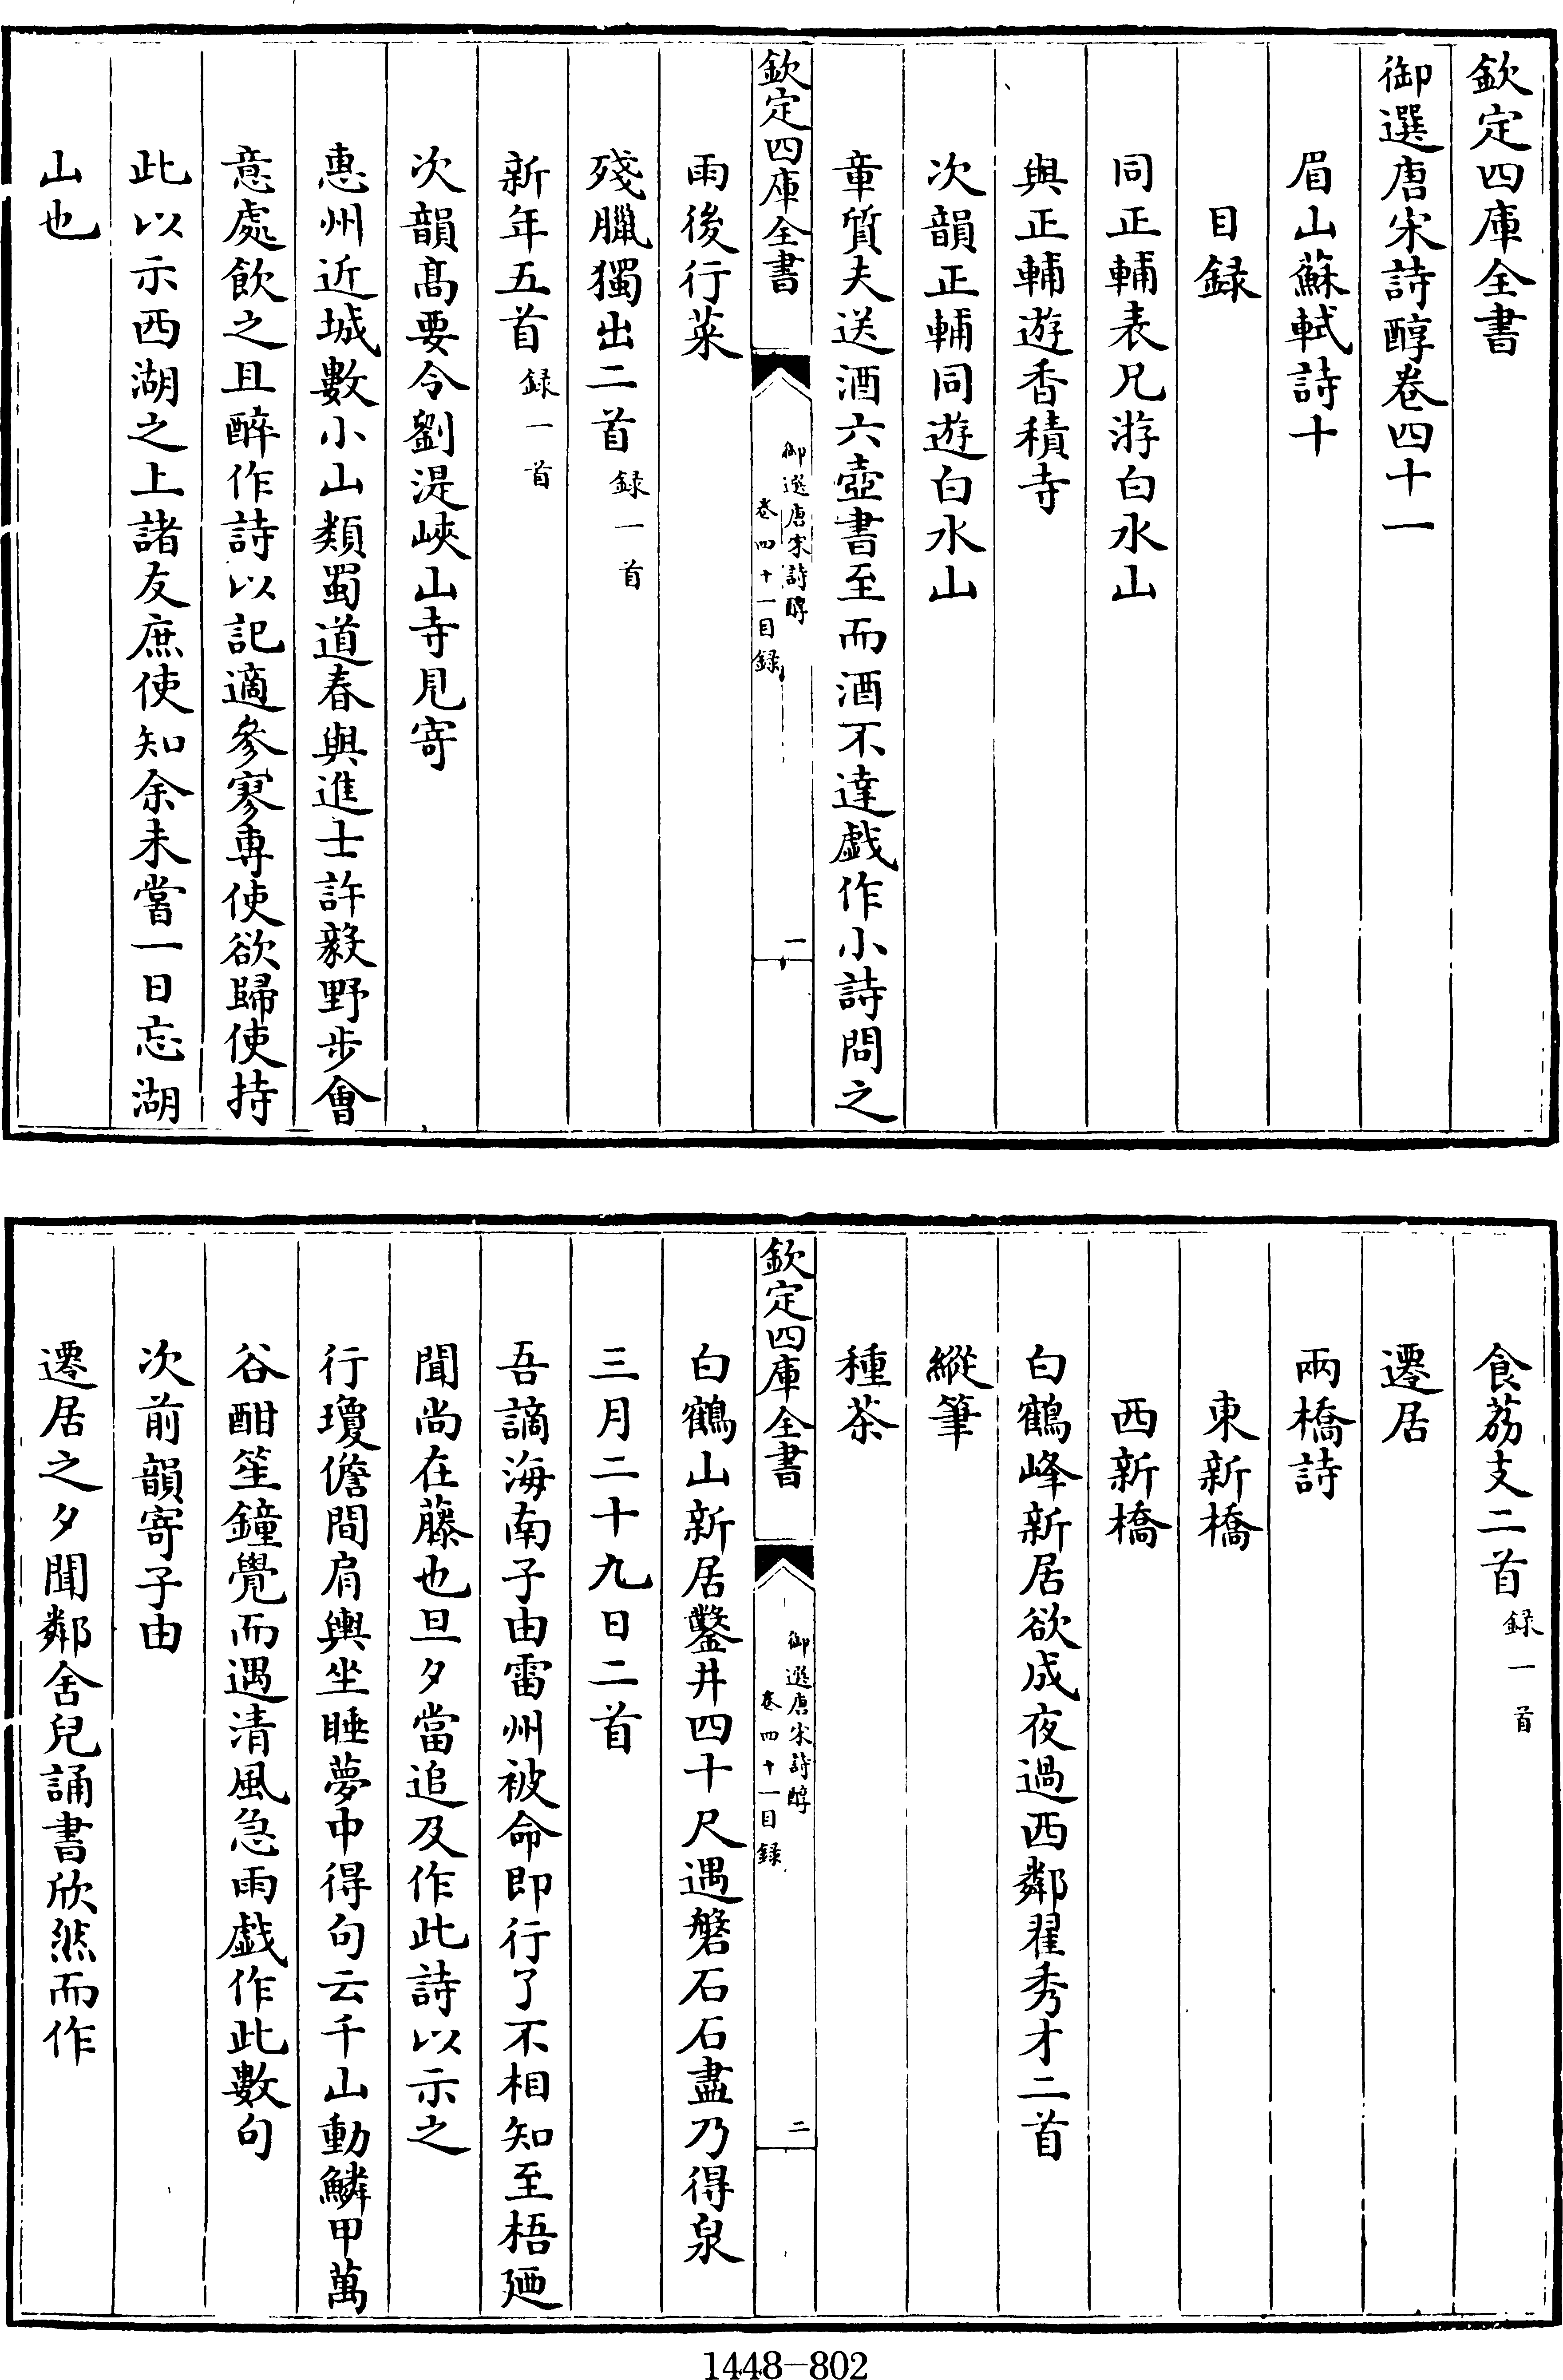 欽定四庫全書
御選唐宋詩醇卷四十一
眉山蘇軾詩十
目録
同正輔表兄游白水山
與正輔遊香積寺
次韻正輔同遊白水山
章質夫送酒六壺書至而酒不達戲作小詩問之
欽定四庫全書
御選唐宋詩醇
卷四十一目録
一
雨後行菜
殘臘獨出二首録一首
新年五首録一首
次韻髙要令劉湜峽山寺見寄
惠州近城數小山類蜀道春與進士許毅野步會
意處飲之且醉作詩以記適參寥專使欲歸使持
此以示西湖之上諸友庶使知余未嘗一日忘湖
山也
食荔支二首録一首
遷居
兩橋詩
東新橋
西新橋
白鶴峰新居欲成夜過西鄰翟秀才二首
縱筆
種茶
欽定四庫全書
御選唐宋詩醇
卷四十一目録
二
白鶴山新居鑿井四十尺遇磐石石盡乃得泉
三月二十九日二首
吾謫海南子由雷州被命即行了不相知至梧廼
聞尚在藤也旦夕當追及作此詩以示之
行瓊儋間肩輿坐睡夢中得句云千山動鱗甲萬
谷酣笙鐘覺而遇清風急雨戲作此數句
次前韻寄子由
遷居之夕聞鄰舍兒誦書欣然而作
1448-802